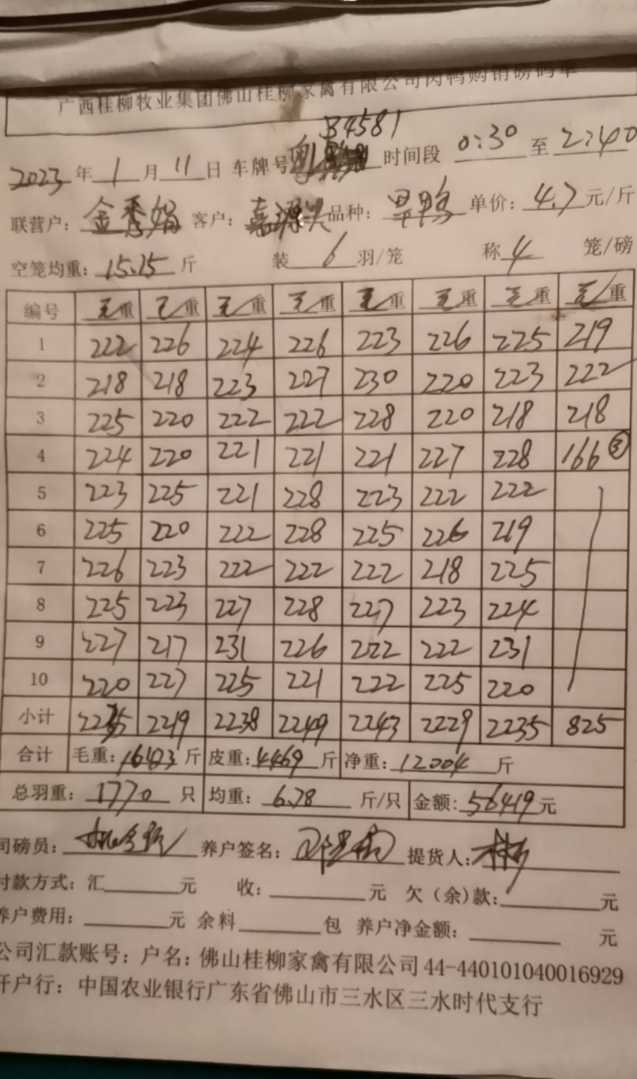 广西桂柳牧业集团佛山桂柳家禽有限公司肉鸭购销磅码单
B4581
2023年1月11日 车牌号 粤 时间段 0:30 至 2:40
联营户：金秀娟 客户：嘉源兴 品种：旱鸭 单价：4.7元/斤
空笼均重：15.15斤 装6羽/笼 称4笼/磅
编号 毛重 毛重 毛重 毛重 毛重 毛重 毛重 毛重
1 222 226 224 226 223 226 225 219
2 218 218 223 227 230 220 223 222
3 225 220 222 222 228 220 218 218
4 224 220 221 221 221 227 228 166 ③
5 223 225 221 228 223 222 222
6 225 220 222 228 225 226 219
7 226 223 222 222 222 218 225
8 225 223 227 228 227 223 224
9 227 217 231 226 222 222 231
10 220 227 225 221 222 225 220
小计 2235 2219 2238 2249 2243 2229 2235 825
合计 毛重：16473斤 皮重：4469斤 净重：12004斤
总羽重：1770只 均重：6.78斤/只 金额：56419元
司磅员： 养户签名： 提货人：
付款方式：汇 元 收： 元 欠（余）款： 元
养户费用： 元 余料 包 养户净金额： 元
公司汇款账号：户名：佛山桂柳家禽有限公司 44-440101040016929
开户行：中国农业银行广东省佛山市三水区三水时代支行